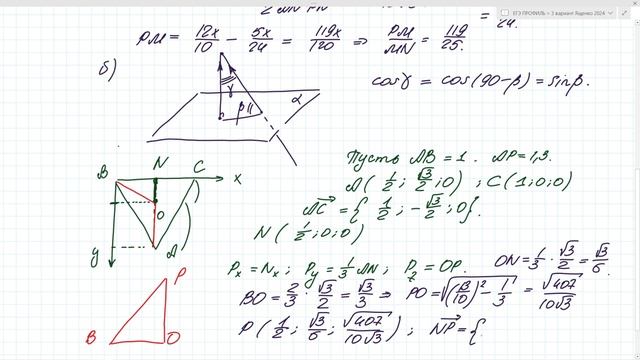 ЕГЭ ПРОФИЛЬ - 3 вариант Ященко 2024
24.
PM = 12x/10 - 5x/24 = 119x/120 ⇒ PM/MN = 119/25.
б)
cosγ = cos(90-β) = sinβ.
γ
β
α
Пусть AB = 1. AP = 1,3.
A(1/2; √3/2; 0); C(1; 0; 0)
AC = {1/2; -√3/2; 0}.
N(1/2; 0; 0)
B N C x
O
y A
Px = Nx; Py = 1/3 AN; Pz = OP. ON = 1/3 · √3/2 = √3/6
BO = 2/3 · √3/2 = √3/3 ⇒ PO = √((13/10)² - 1/3) = √407/10√3
P(1/2; √3/6; √407/10√3); NP = {
P
B O